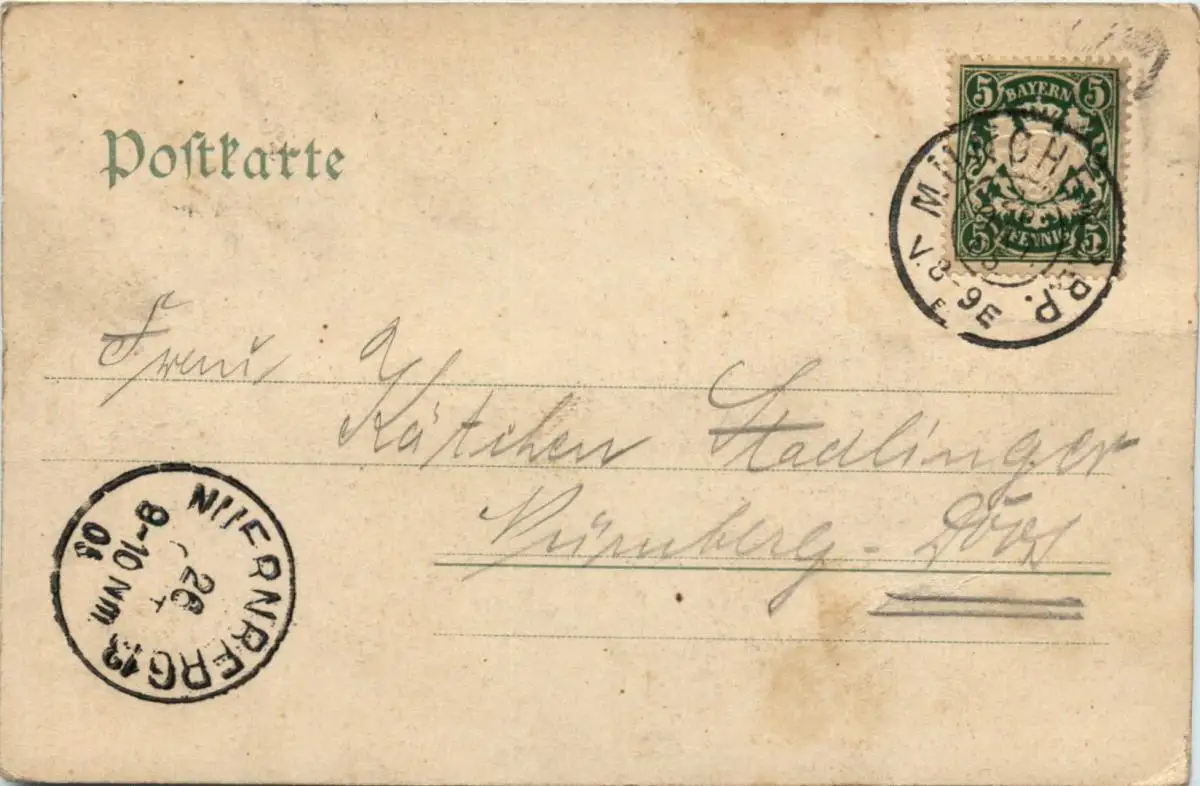 Postkarte
5 BAYERN 5
5 PFENNIG 5
MÜNCHEN
V. 8-9E
E. B.P.
Frau
Kätchen Stadlinger
Nürnberg - Doos
NUERNBERG 13
9-10 NM
26
03